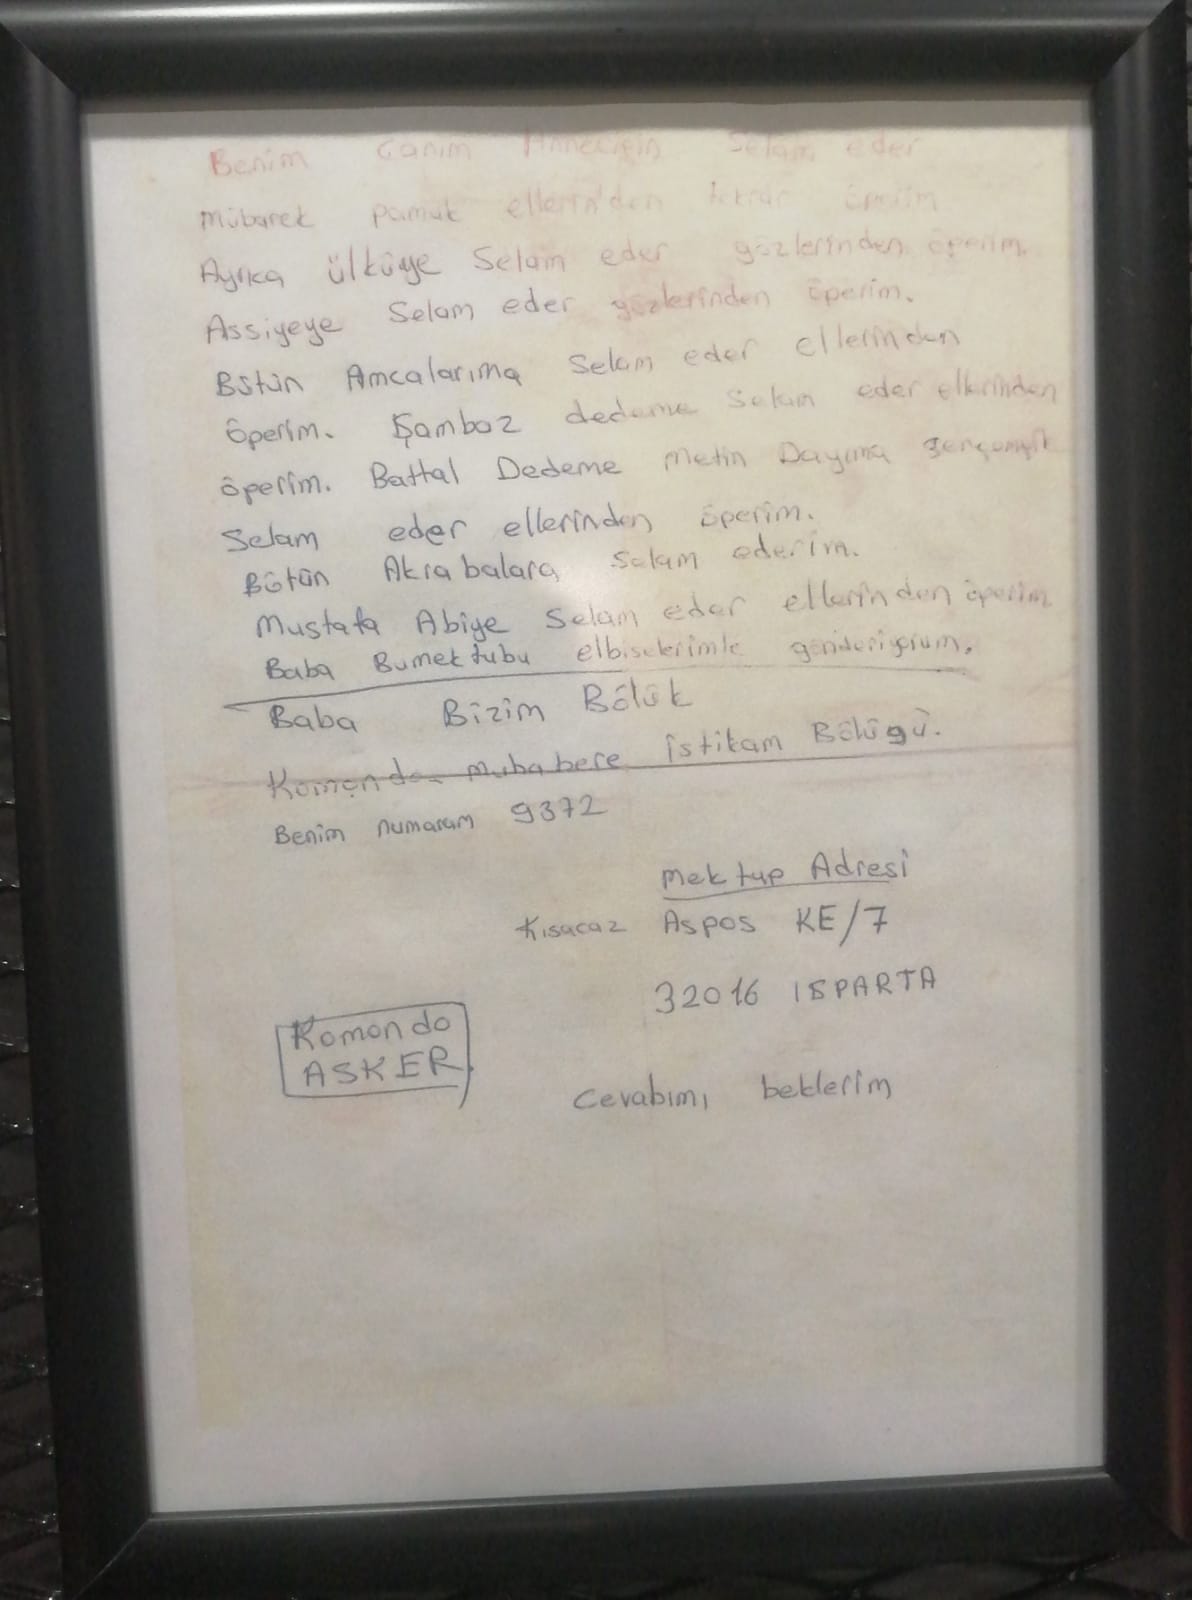 Benim Canım Anneciğin Selam eder
Mübarek pamuk ellerin'den tekrar öperim
Ayrıca ülküye Selam eder gözlerinden öperim.
Assiyeye Selam eder gözlerinden öperim.
Bütün Amcalarıma Selam eder ellerinden
öperim. Şamboz dedeme Selam eder ellerinden
öperim. Battal Dedeme Metin Dayıma
Selam eder ellerinden öperim.
Bütün Akrabalara Selam ederim.
Mustafa Abiye Selam eder ellerinden öperim
Baba Bumektubu elbiselerimle gönderiyorum.
Baba Bizim Bölük
Komondo muhabere istikam Bölügü.
Benim numaram 9372
Mektup Adresi
Kısacaz Aspos KE/7
32016 ISPARTA
Komondo
ASKER
Cevabımı beklerim